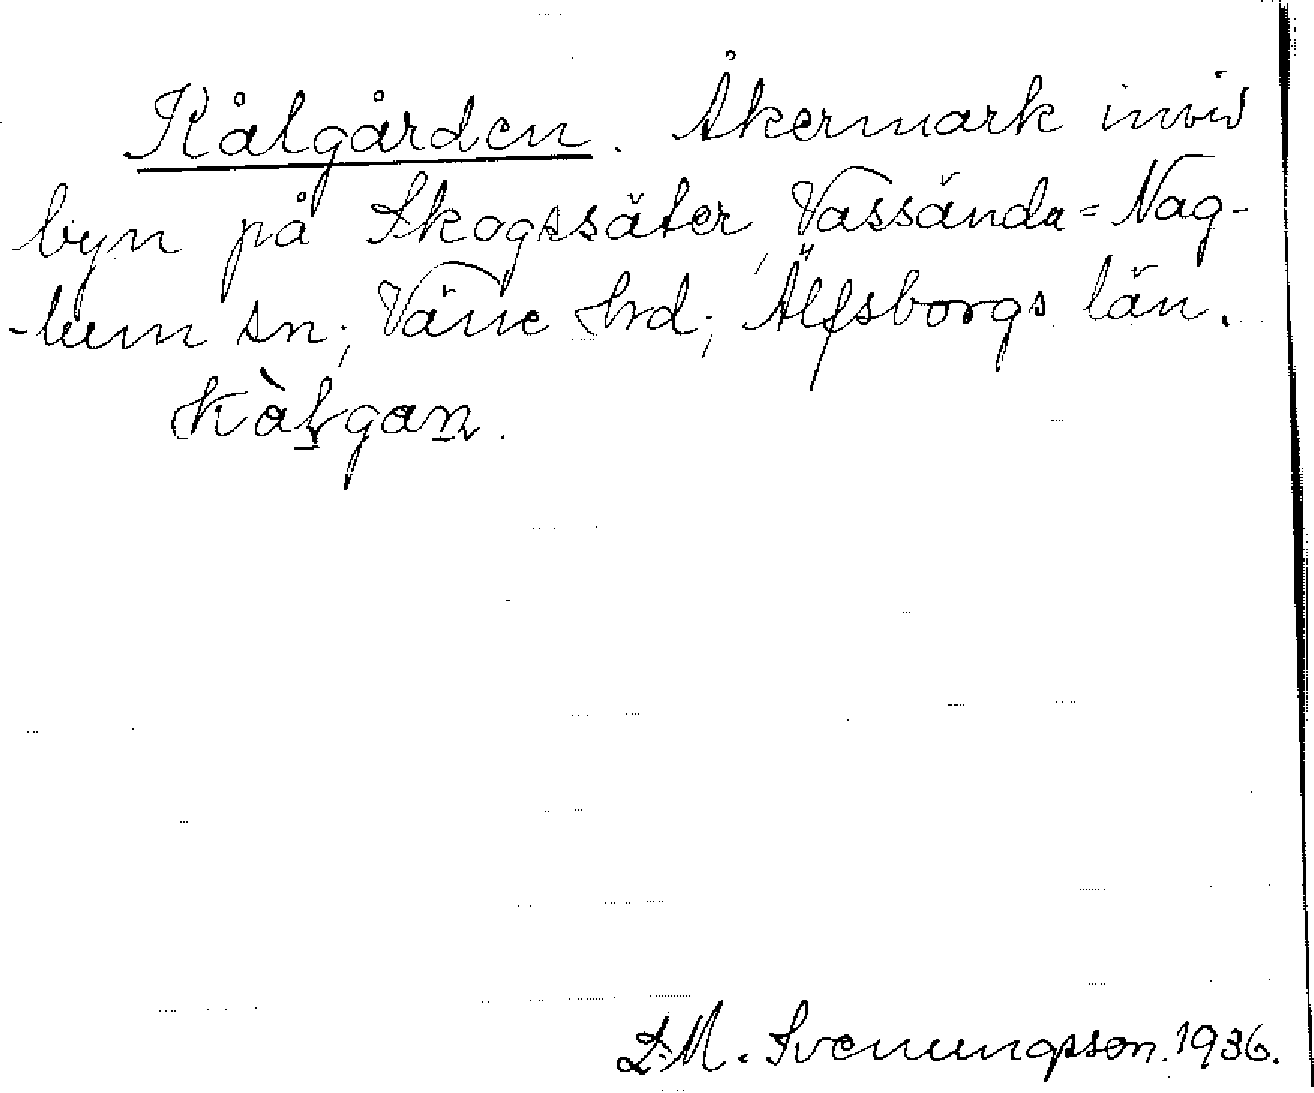 Kålgården. Åkermark invid
byn på Skogssäter, Vassända=Nag-
-lum sn; Väne hrd; Älfsborgs län.
kàlgan.
D.M. Svenungsson. 1936.